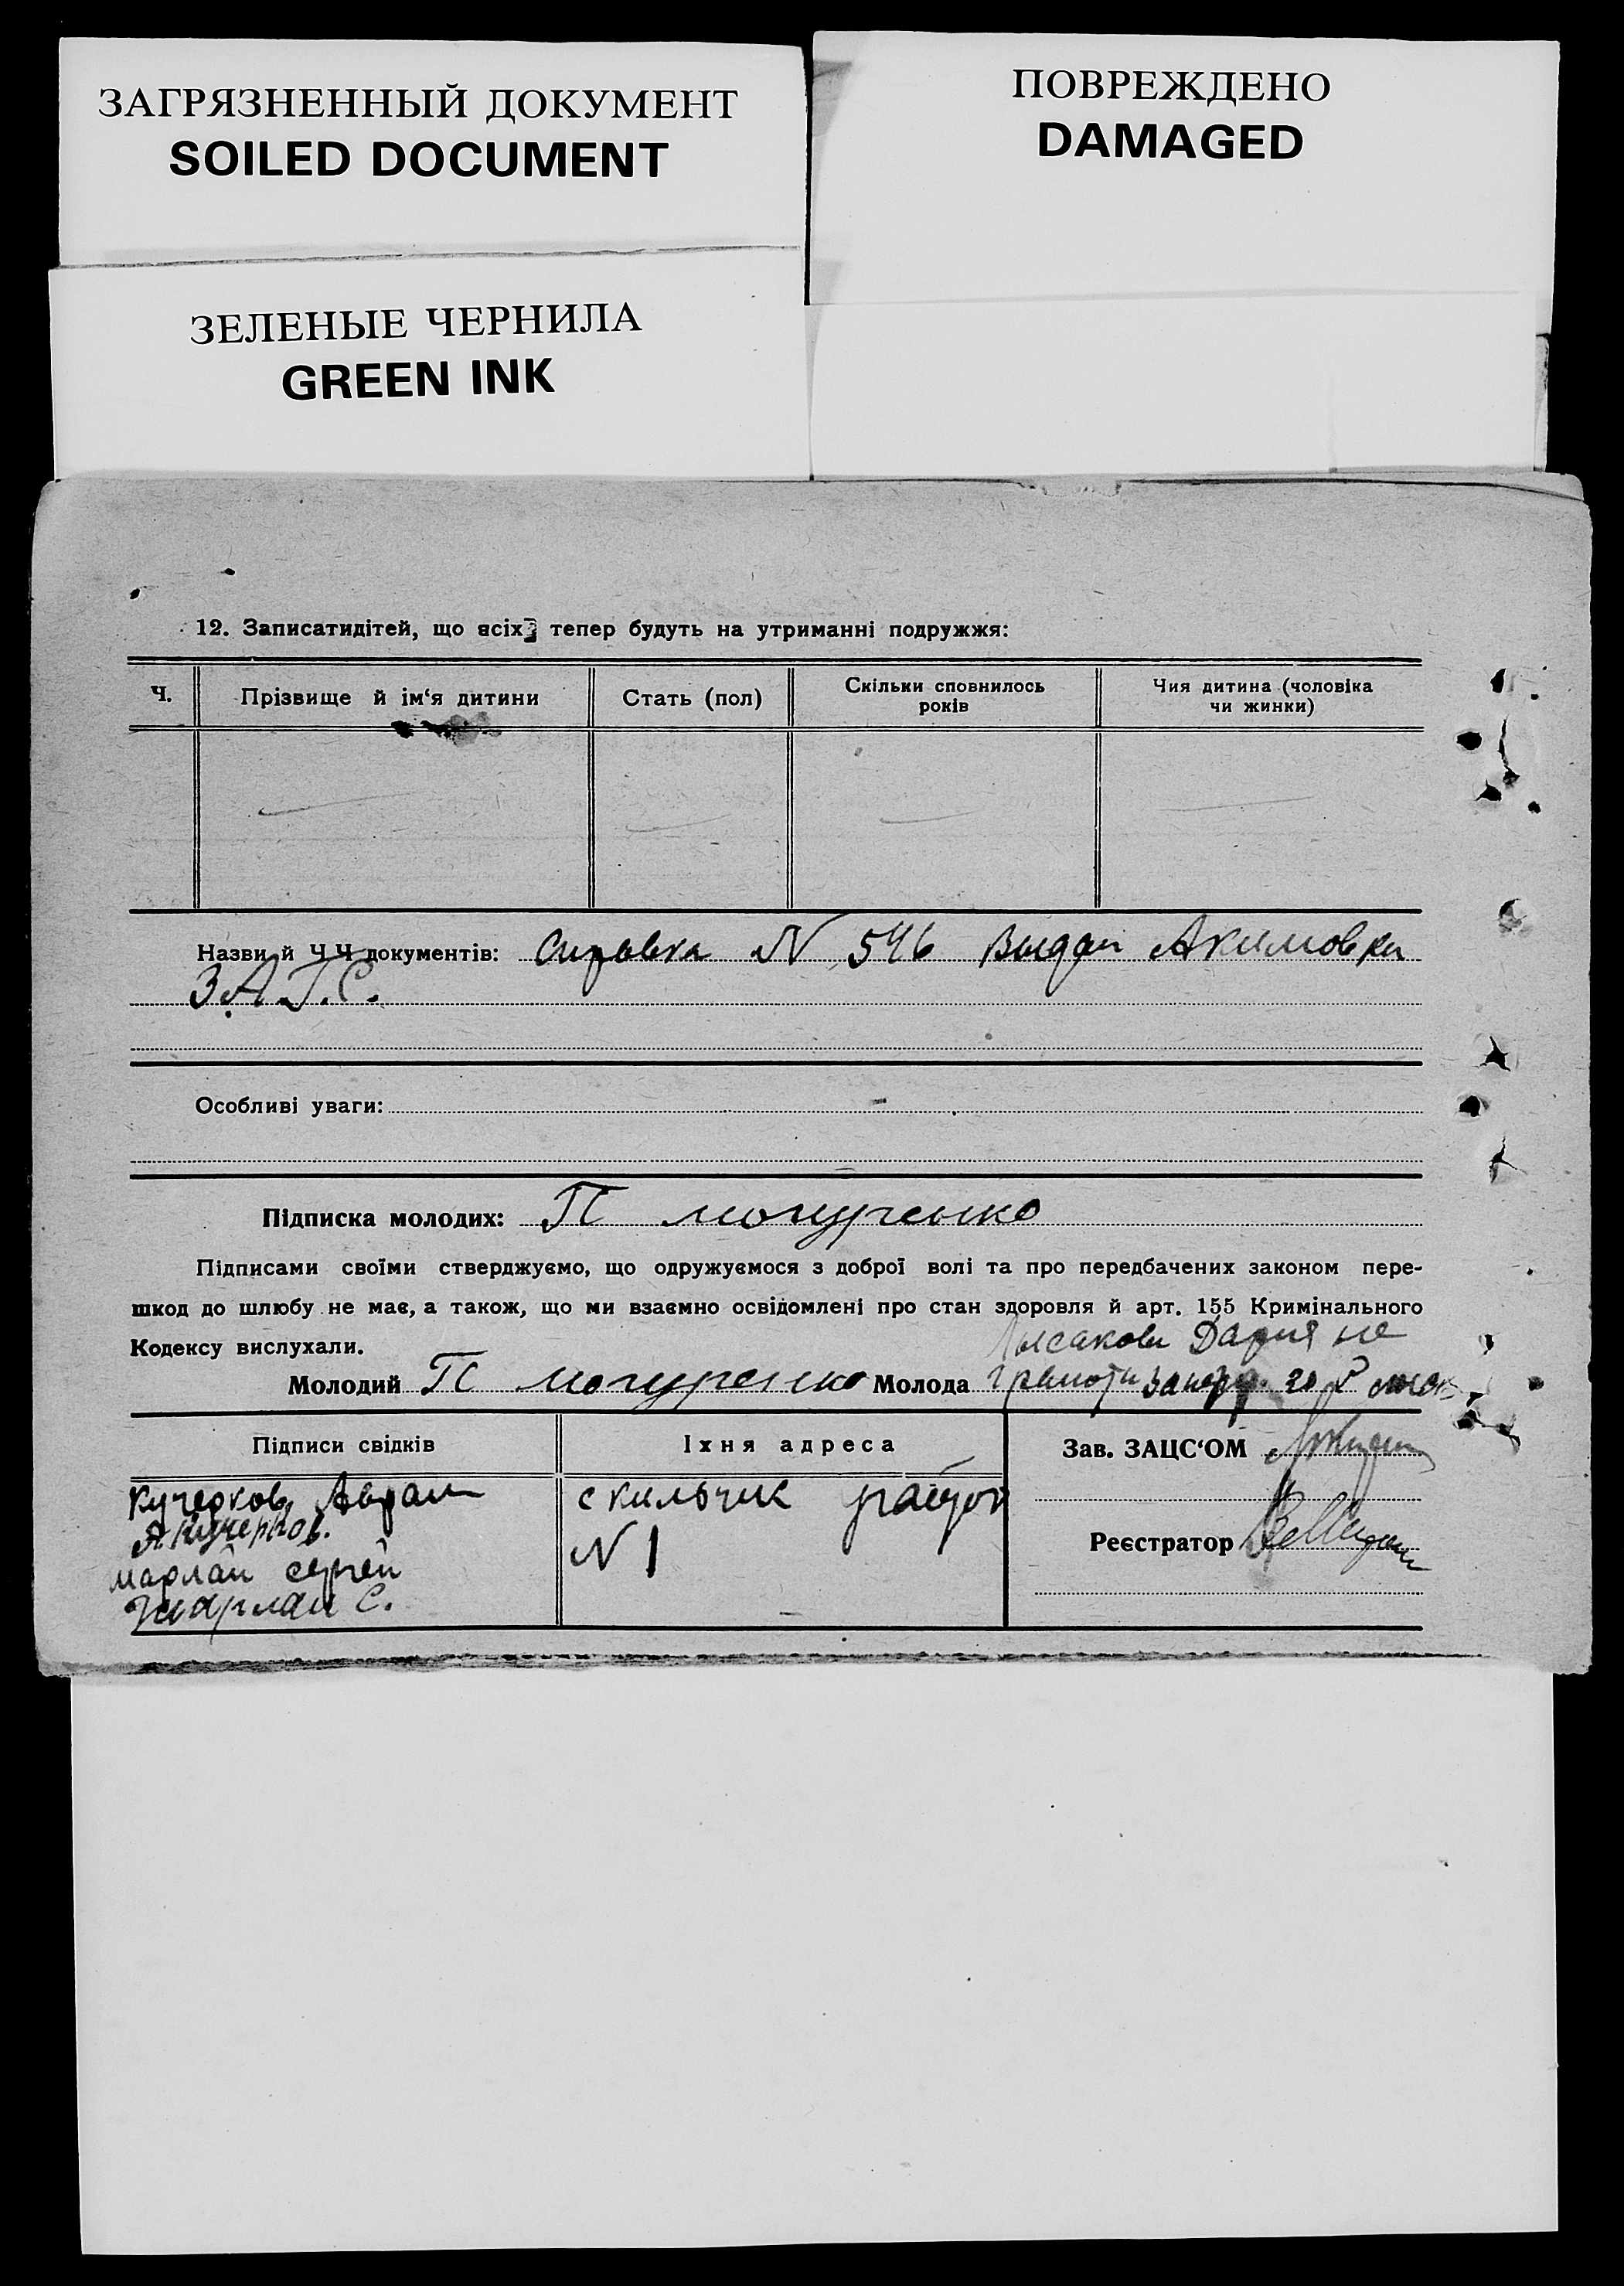 ЗАГРЯЗНЕННЫЙ ДОКУМЕНТ
SOILED DOCUMENT
ПОВРЕЖДЕНО
DAMAGED
ЗЕЛЕНЫЕ ЧЕРНИЛА
GREEN INK
12. Записатидітей, що всіх тепер будуть на утриманні подружжя:
Ч.
Прізвище й ім‘я дитини
Стать (пол)
Скільки сповнилось
років
Чия дитина (чоловіка
чи жинки)
Назви й Ч.Ч документів: Справка N 546 Выдан Акимовки
З.А.Г.С.
Особливі уваги:
Підписка молодих: П
Підписами своїми стверджуємо, що одружуємося з доброї волі та про передбачених законом пере-
шкод до шлюбу не має, а також, що ми взаємно освідомлені про стан здоровля й арт. 155 Кримінального
Кодексу вислухали.
Дария не
Молодий П Молода
Підписи свідків
Їхня адреса
Зав. ЗАЦС‘ОМ
Кучерков Аврам
А Кучерков.
Марлан Сергей
Марлан С.
N 1
Реєстратор